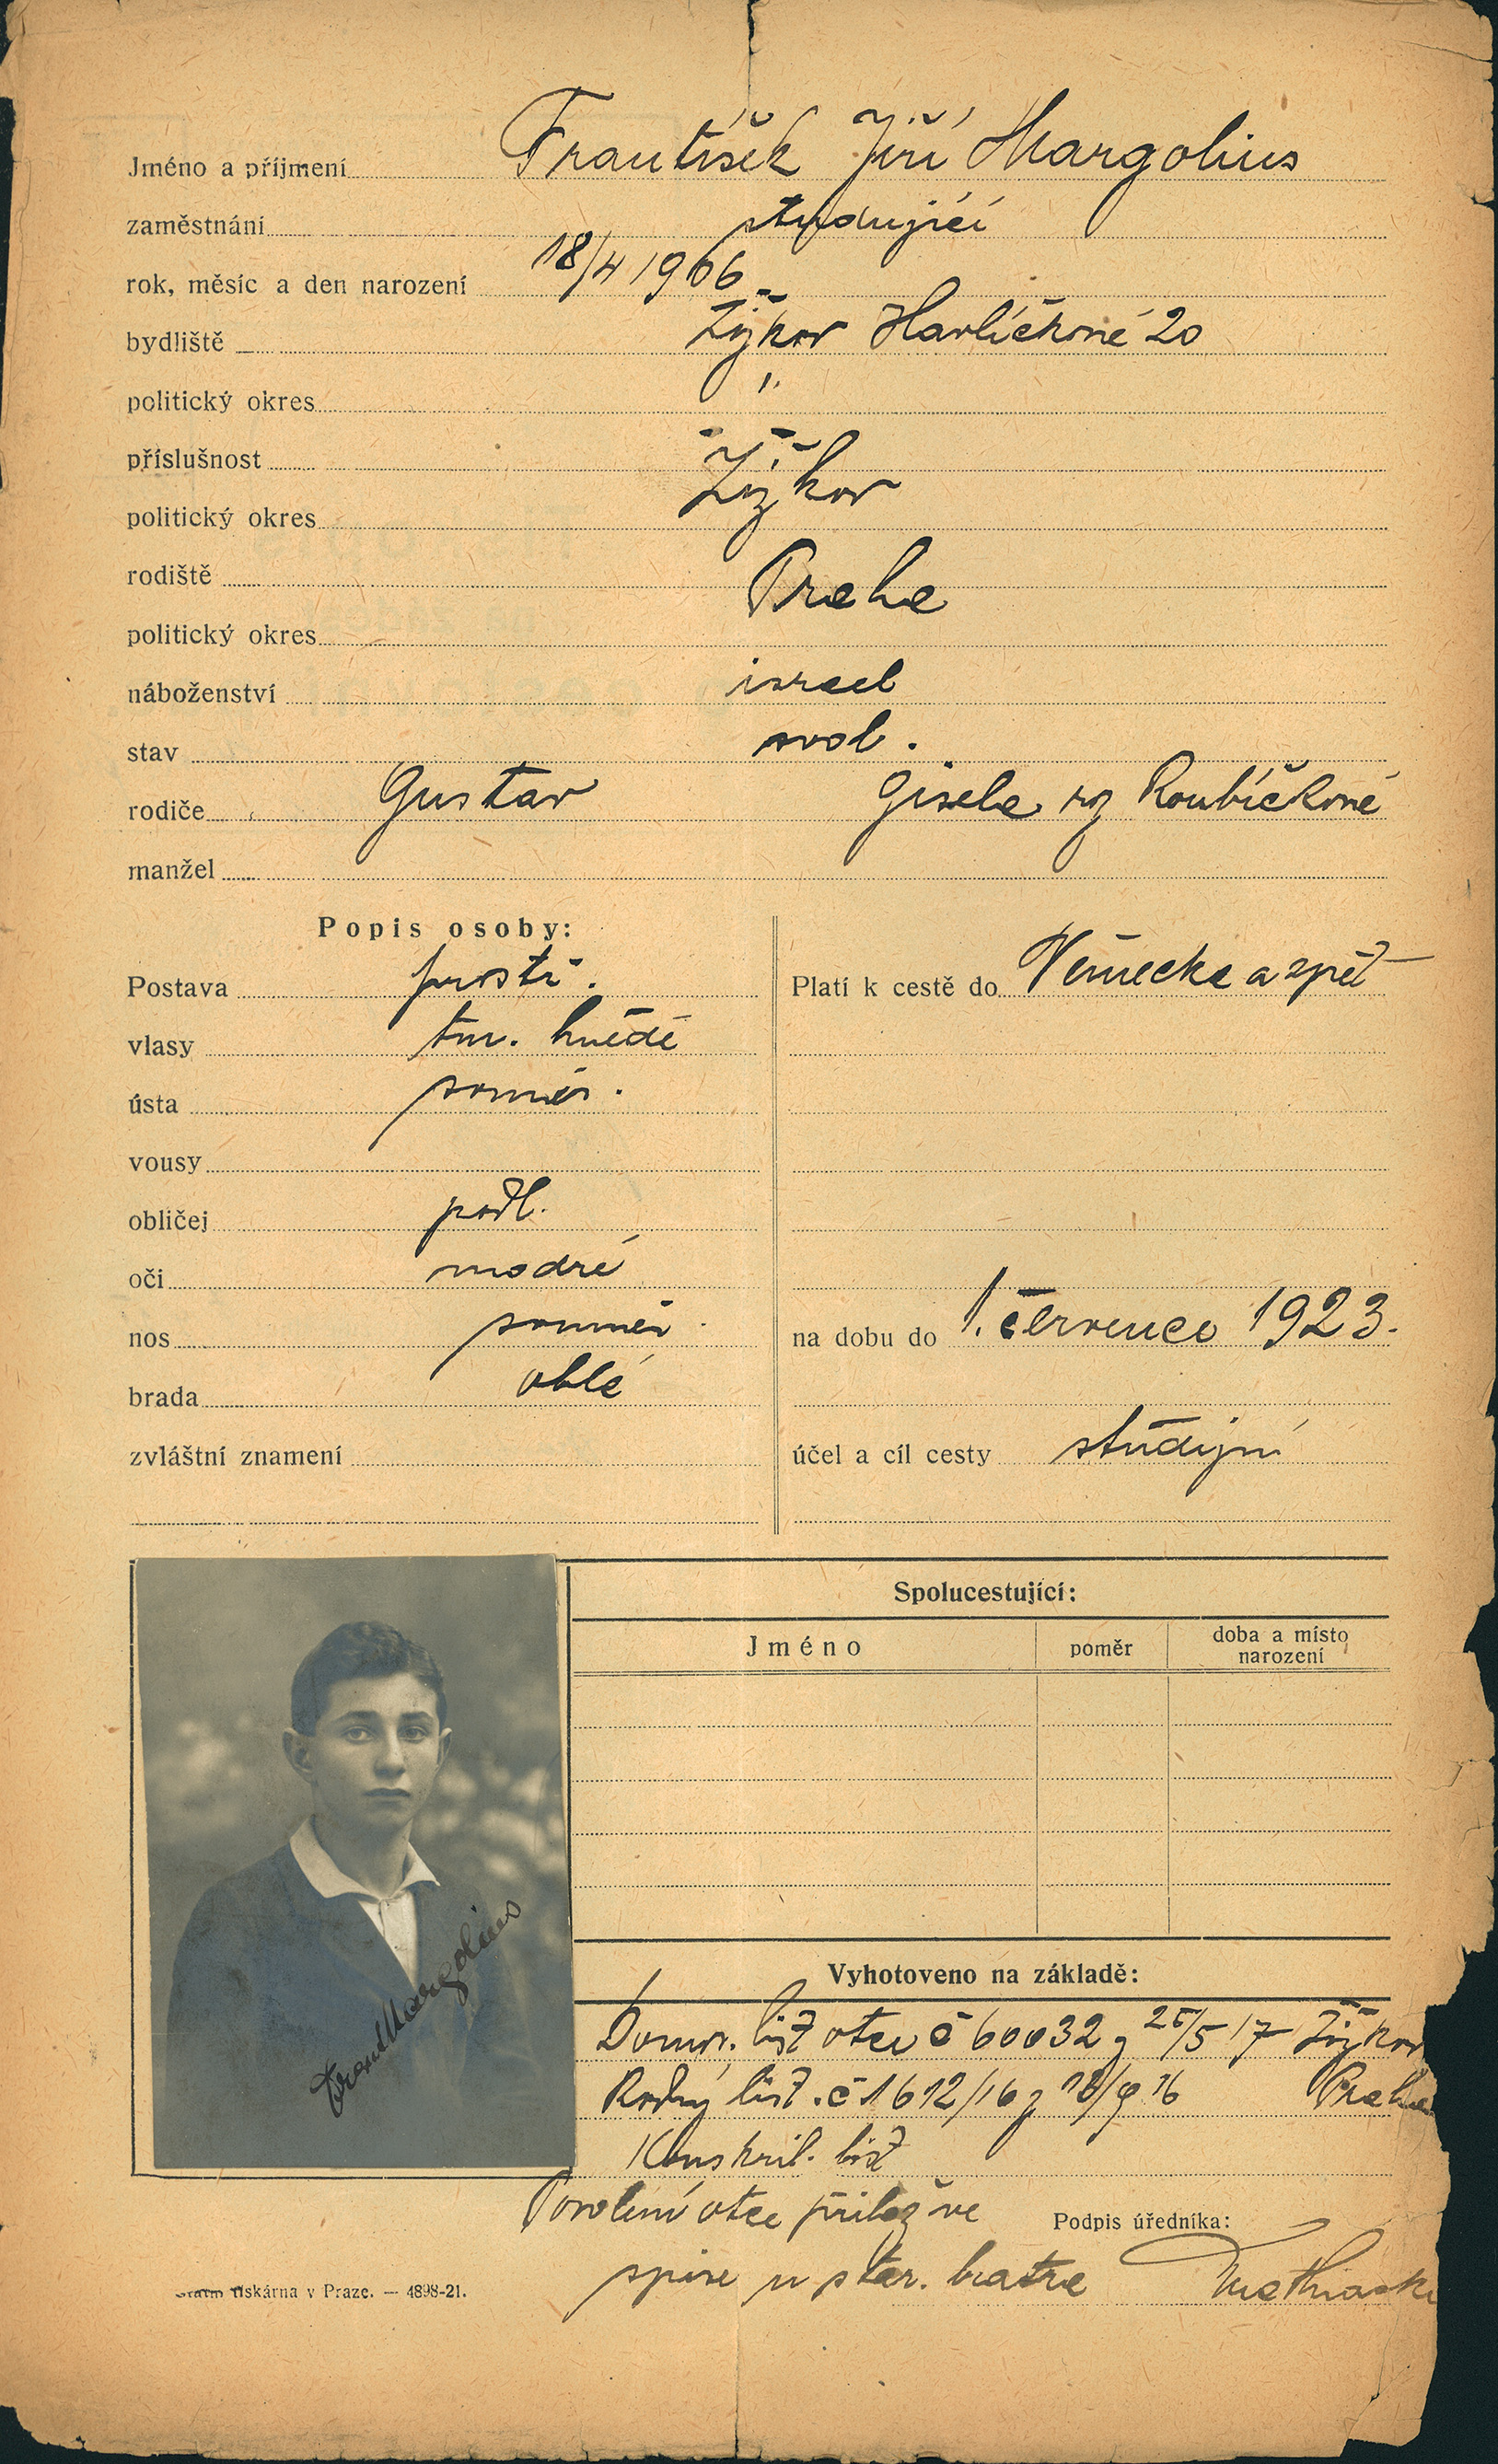 Jméno a příjmení František Jiří Margolius
zaměstnání studující
rok, měsíc a den narození 18/4 1906
bydliště Žižkov Havlíčkova 20
politický okres "
příslušnost Žižkov
politický okres
rodiště Praha
politický okres
náboženství israel
stav svob.
rodiče Gustav Gisela rz Roubíčková
manžel
Popis osoby:
Postava prostř.
vlasy tm. hnědé
ústa souměr.
vousy
obličej podl.
oči modré
nos souměr.
brada oblá
zvláštní znamení
Platí k cestě do Německa a zpět
na dobu do 1. července 1923.
účel a cíl cesty studijní
Spolucestující:
Jméno poměr doba a místo narození
Frant Margolius
Vyhotoveno na základě:
Domov. list otce č 60032 z 25/5 17 Žižkov
Rodný list č 1612/16 z 18/9 16 Praha
Konskrib. list
Povolení otce přilož ve
spise u star. bratra
Podpis úředníka:
tiskárna v Praze. — 4898-21.